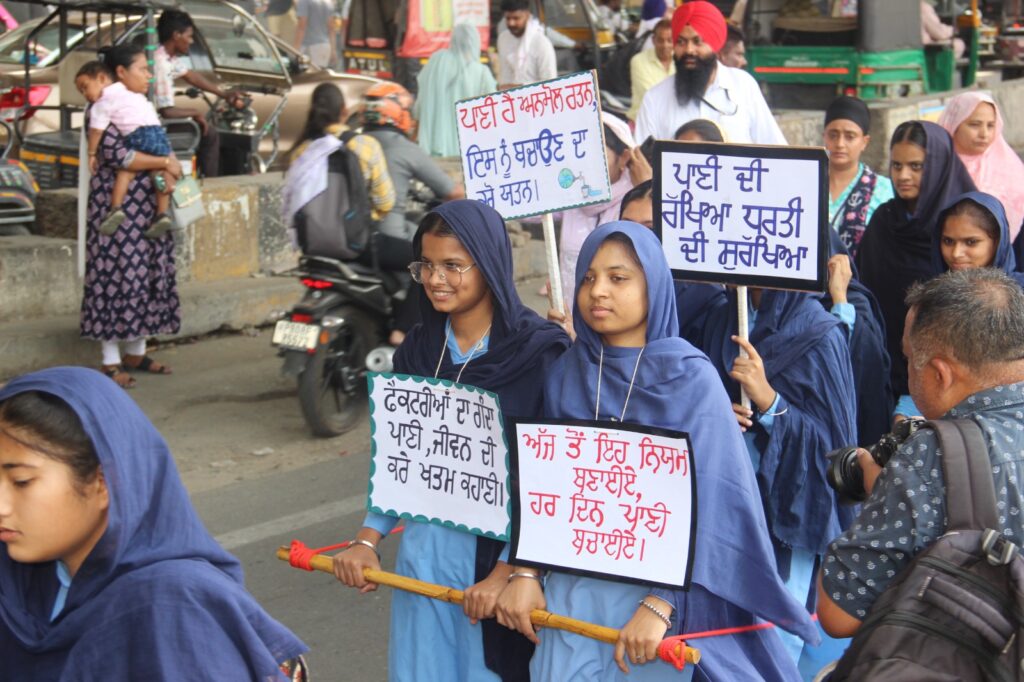 ਪਾਣੀ ਹੈ ਅਨਮੋਲ ਰਤਨ,
ਇਸ ਨੂੰ ਬਚਾਉਣ ਦਾ
ਕਰੋ ਯਤਨ।
ਪਾਣੀ ਦੀ
ਰੱਖਿਆ ਧਰਤੀ
ਦੀ ਸੁਰੱਖਿਆ
ਫੈਕਟਰੀਆਂ ਦਾ ਗੰਦਾ
ਪਾਣੀ ,ਜੀਵਨ ਦੀ
ਕਰੇ ਖਤਮ ਕਹਾਣੀ।
ਅੱਜ ਤੋਂ ਇਹ ਨਿਯਮ
ਬਣਾਈਏ,
ਹਰ ਦਿਨ ਪਾਣੀ
ਬਚਾਈਏ।